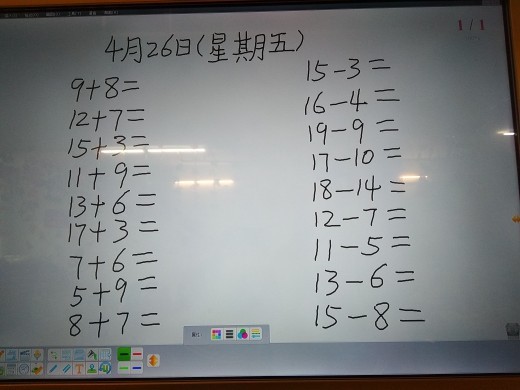 1/1
4月26日(星期五)
9+8=
12+7=
15+3=
11+9=
13+6=
17+3=
7+6=
5+9=
8+7=
15-3=
16-4=
19-9=
17-10=
18-14=
12-7=
11-5=
13-6=
15-8=